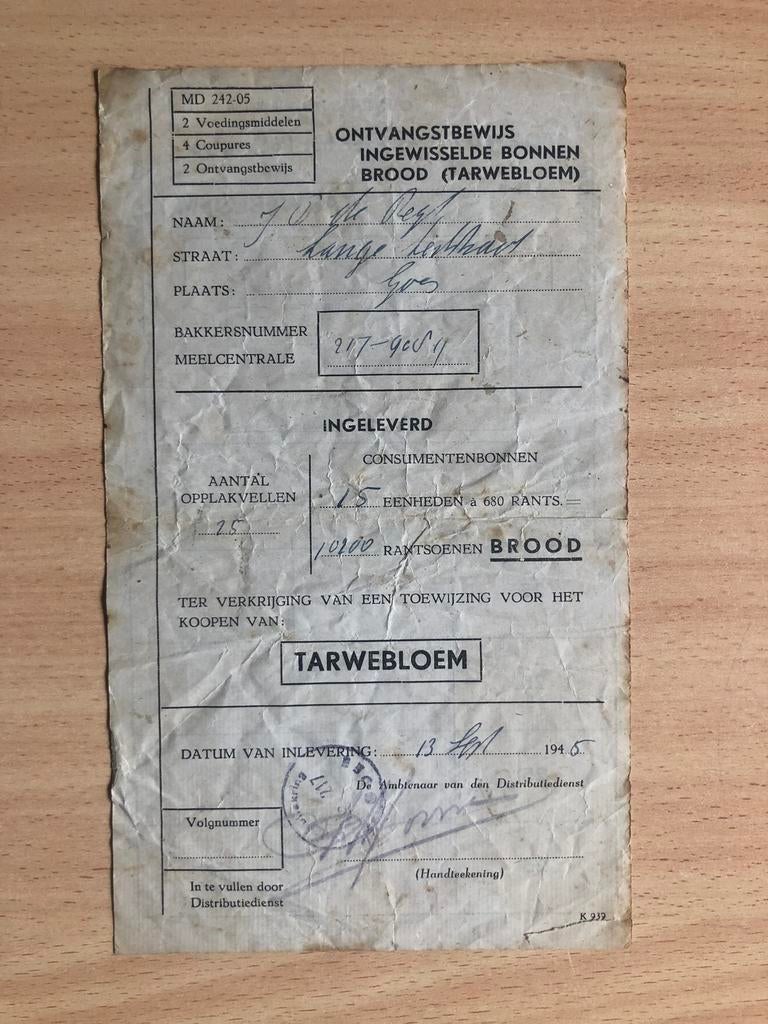 MD 242-05
2 Voedingsmiddelen
4 Coupures
2 Ontvangstbewijs
ONTVANGSTBEWIJS
INGEWISSELDE BONNEN
BROOD (TARWEBLOEM)
NAAM: de Regt
STRAAT: Lange
PLAATS: Goes
BAKKERSNUMMER
MEELCENTRALE
217-
INGELEVERD
AANTAL
OPPLAKVELLEN
25
CONSUMENTENBONNEN
15 EENHEDEN à 680 RANTS. =
10200 RANTSOENEN BROOD
TER VERKRIJGING VAN EEN TOEWIJZING VOOR HET
KOOPEN VAN:
TARWEBLOEM
DATUM VAN INLEVERING: 13 Sept 1945
De Ambtenaar van den Distributiedienst
217
Volgnummer
(Handteekening)
In te vullen door
Distributiedienst
K 939